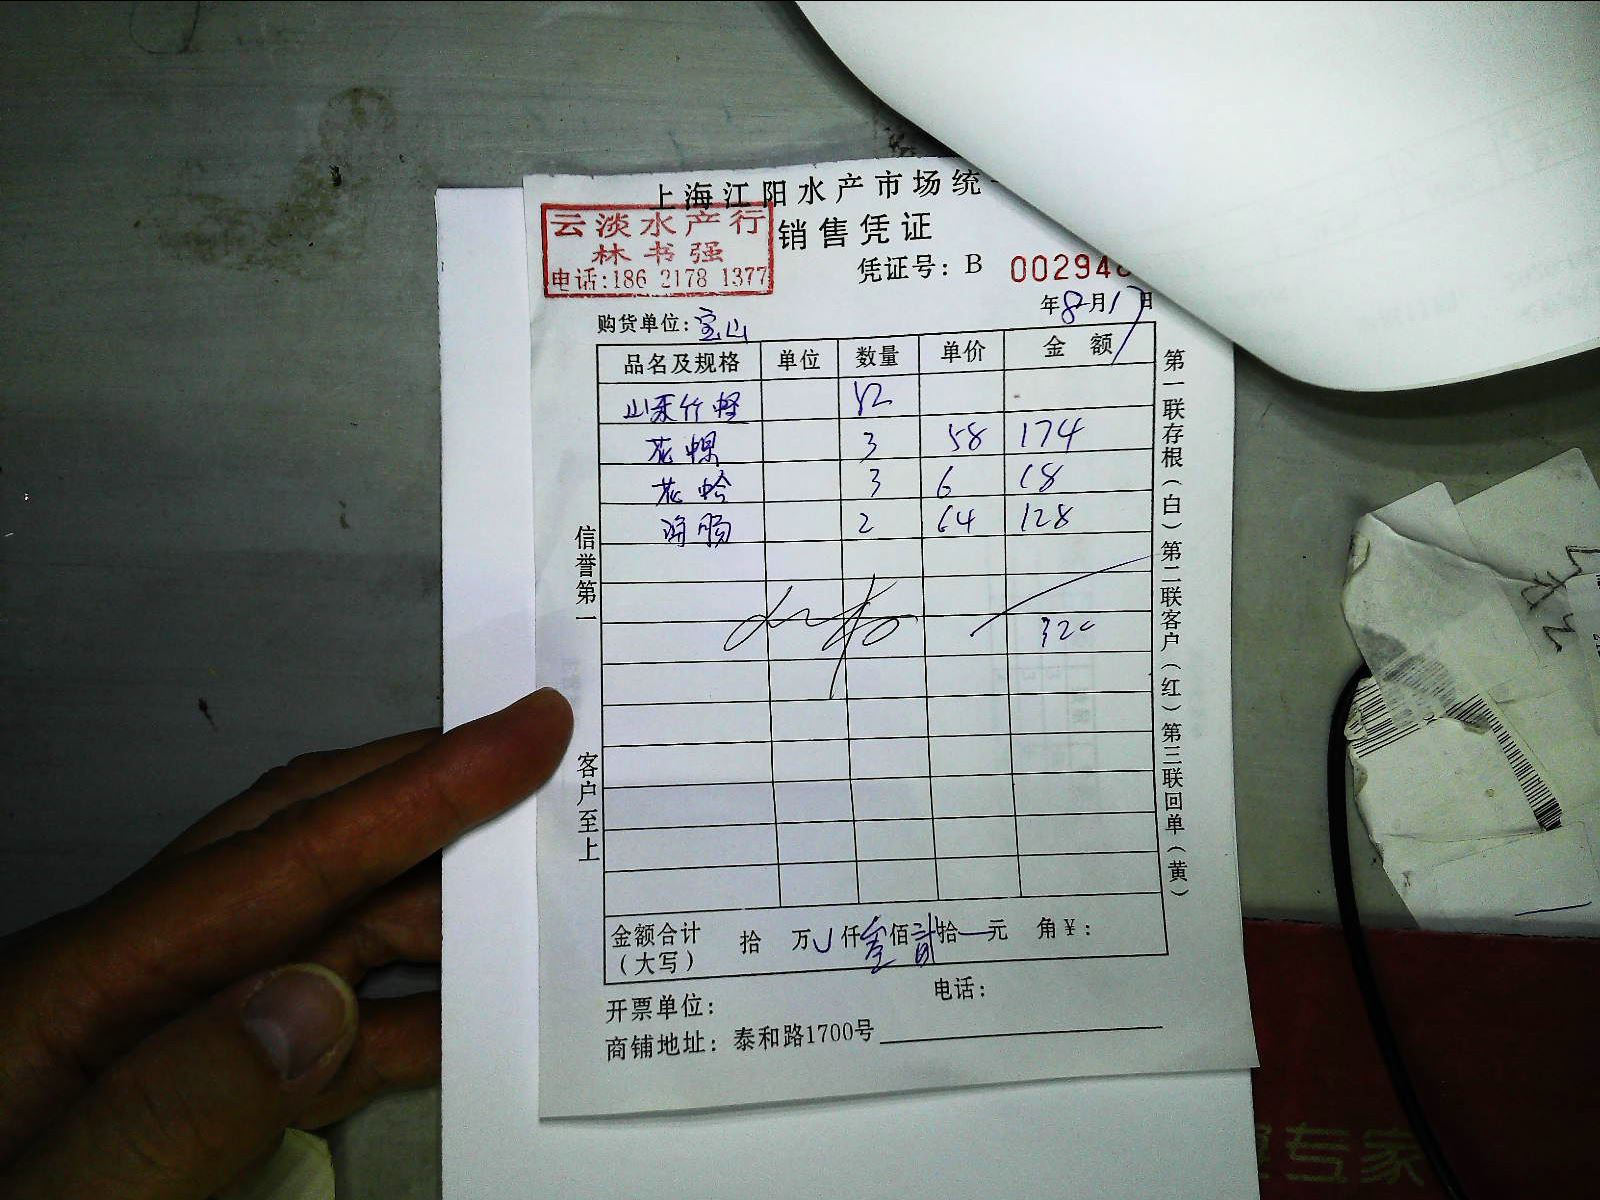 上海江阳水产市场统
云淡水产行
林书强
电话:186 2178 1377
销售凭证
凭证号: B 00294
年8月17日
购货单位: 宝山
品名及规格 单位 数量 单价 金额
山东竹蛏
花螺 3 58 174
花蛤 3 6 18
海肠 2 64 128
320
信誉第一
客户至上
第一联存根(白)第二联客户(红)第三联回单(黄)
金额合计(大写) 拾 万 仟叁佰贰拾 元 角¥:
开票单位: 电话:
商铺地址: 泰和路1700号
专家